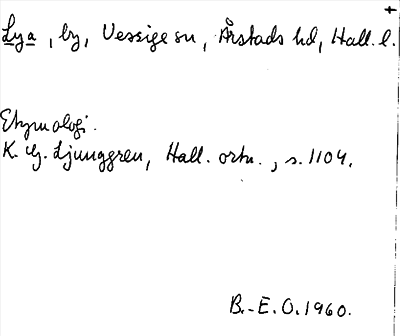 +
Lya, by, Vessige sn, Årstads hd, Hall. l.
Etymologi.
K. G. Ljunggren, Hall. ortn., s. 1104.
B.-E. O. 1960.